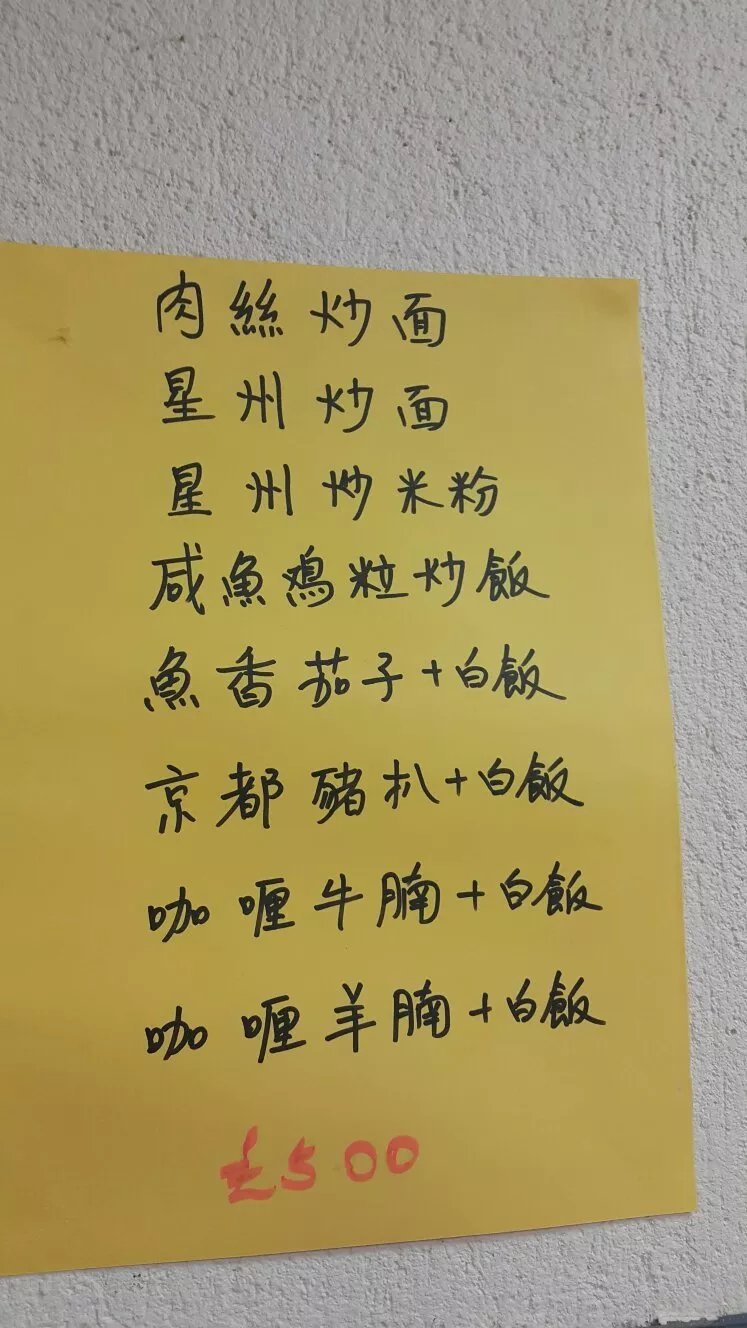 肉絲炒面
星州炒面
星州炒米粉
咸魚鳮粒炒飯
魚香茄子+白飯
京都豬扒+白飯
咖喱牛腩+白飯
咖喱羊腩+白飯
£5.00